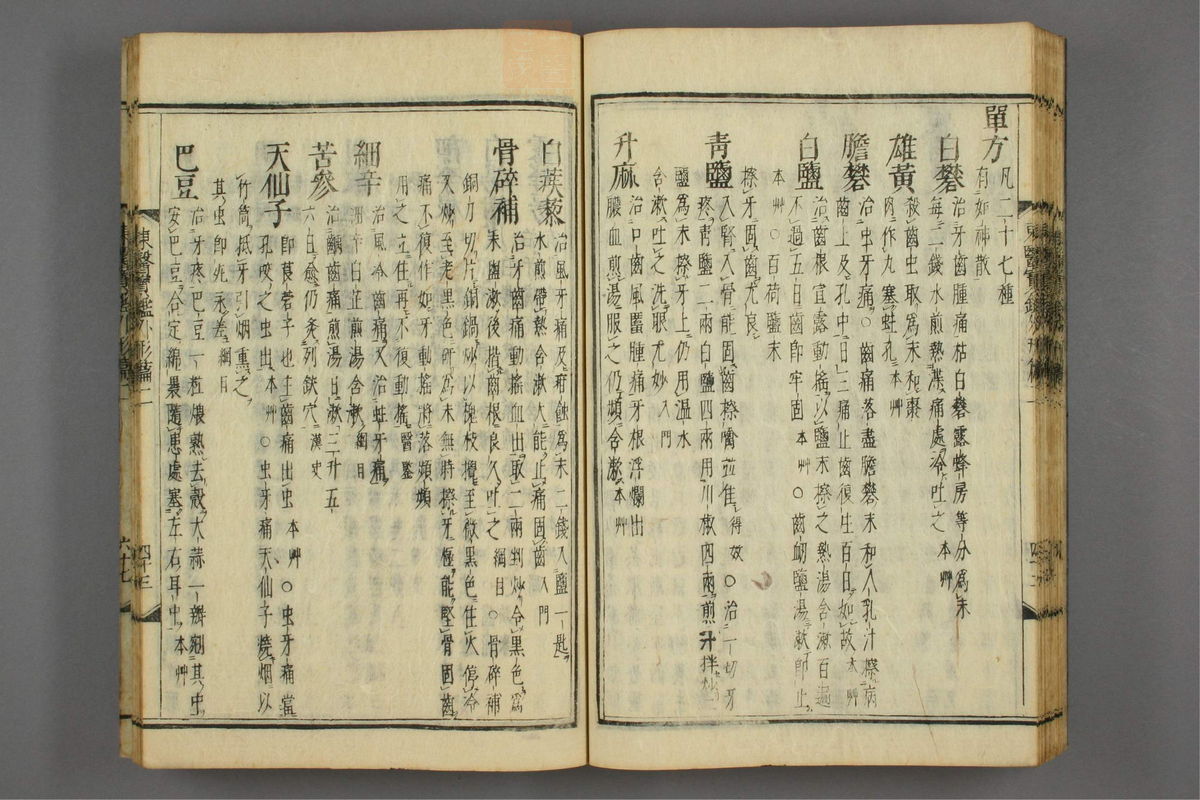 單方 凡二十七種
有如神散
白礬 治牙齒腫痛枯白礬露蜂房等分爲末
每二錢水煎熱渫痛處冷吐之 本艸
雄黃 殺齒虫取爲末和棗
肉作丸塞蛀孔 本艸
膽礬 治虫牙痛○齒痛落盡膽礬末和人乳汁擦病
齒上及孔中日三痛止齒復生百日如故 本艸
白鹽 治齒根宣露動搖以鹽末擦之熱湯含漱百遍
不過五日齒卽牢固 本艸 ○齒衄鹽湯漱卽止
本艸 ○百荷鹽末
擦牙固齒尤良
青鹽 入腎入骨能固齒擦嚥並佳 得效 ○治一切牙
疼靑鹽二兩白鹽四兩用川椒四兩煎汁拌炒
鹽爲末擦牙上仍用溫水
含漱吐之洗眼尤妙 入門
升麻 治口齒風䘌腫痛牙根浮爛出
膿血煎湯服之仍頻含漱 本艸
白蒺藜 治風牙痛及疳蝕爲末二錢入鹽一匙
水煎帶熱含漱大能止痛固齒 入門
骨碎補 治牙齒痛動搖血出取二兩剉炒令黑色爲
末盥漱後揩齒根良久吐之 綱目 ○骨碎補
銅刀切片銅鍋炒以槐枝攪至微黑色住火停冷
又炒至老黑色硏爲末無時擦牙極能堅骨固齒
痛不復作如牙動搖將落頻頻
用之立住再不復動搖 醫鑒
細辛 治風冷齒痛又治蛀牙痛
細辛白芷煎湯含漱 綱目
苦參 治齲齒痛煎湯日漱三升五
六日愈仍灸列缺穴 漢史
天仙子 卽莨菪子也主齒痛出虫 本艸 ○虫牙痛當
孔咬之虫出 本艸 ○虫牙痛天仙子燒烟以
竹筒抵牙引烟熏之
其虫卽死永差 綱目
巴豆 治牙疼巴豆一粒煨熟去殼大蒜一瓣剜其中
安巴豆合定綿裹隨患處塞左右耳中 本艸
東醫寶鑑外形篇二
四十三